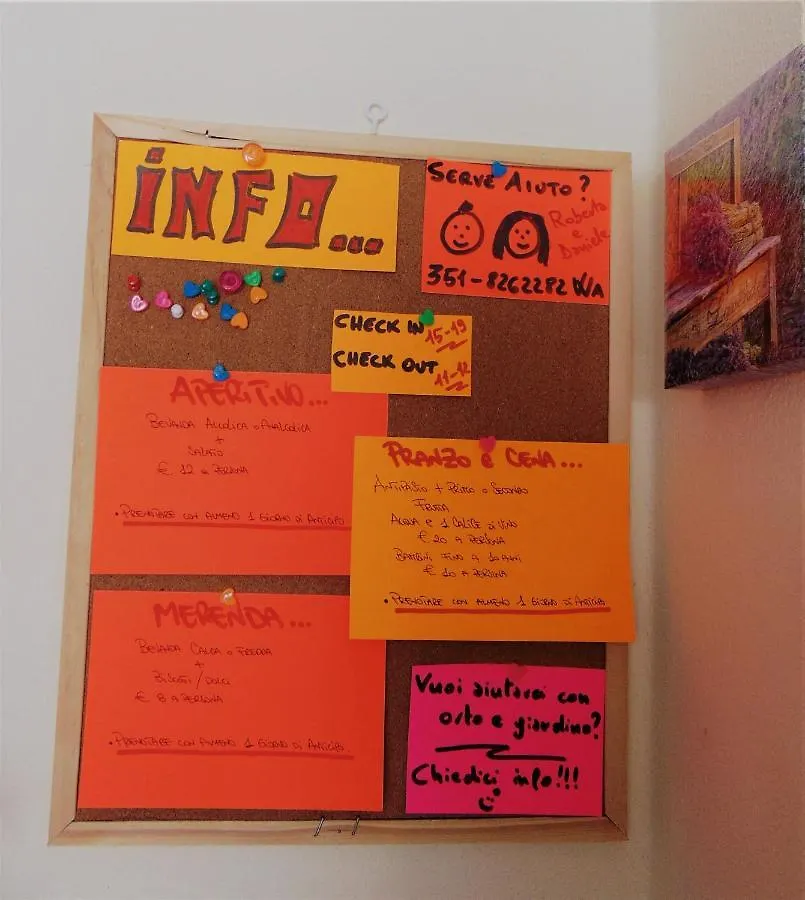 INFO...
SERVE AIUTO?
Roberta
e
Daniele
351-8262282 WA
CHECK IN 15-19
CHECK OUT 11-12
APERITIVO...
BEVANDA ALCOLICA O ANALCOLICA
+
SALATO
€ 12 a PERSONA
• PRENOTARE CON ALMENO 1 GIORNO DI ANTICIPO
PRANZO E CENA...
ANTIPASTO + PRIMO O SECONDO
FRUTTA
ACQUA E 1 CALICE DI VINO
€ 20 A PERSONA
BAMBINI FINO A 10 ANNI
€ 10 A PERSONA
• PRENOTARE CON ALMENO 1 GIORNO DI ANTICIPO
MERENDA...
BEVANDA CALDA O FREDDA
+
BISCOTTI/DOLCI
€ 8 a PERSONA
• PRENOTARE CON ALMENO 1 GIORNO DI ANTICIPO
Vuoi aiutarci con
orto e giardino?
Chiedici info!!!